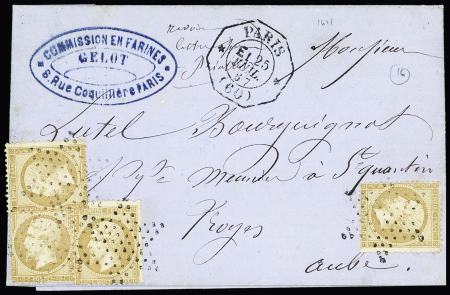 COMMISSION EN FARINES
GELOT
6, Rue Coquillière PARIS
PARIS
E. 25
67
(60)
16
Monsieur
Lutel Bourguignot
Meunier à St Quentin
Troyes
Aube.